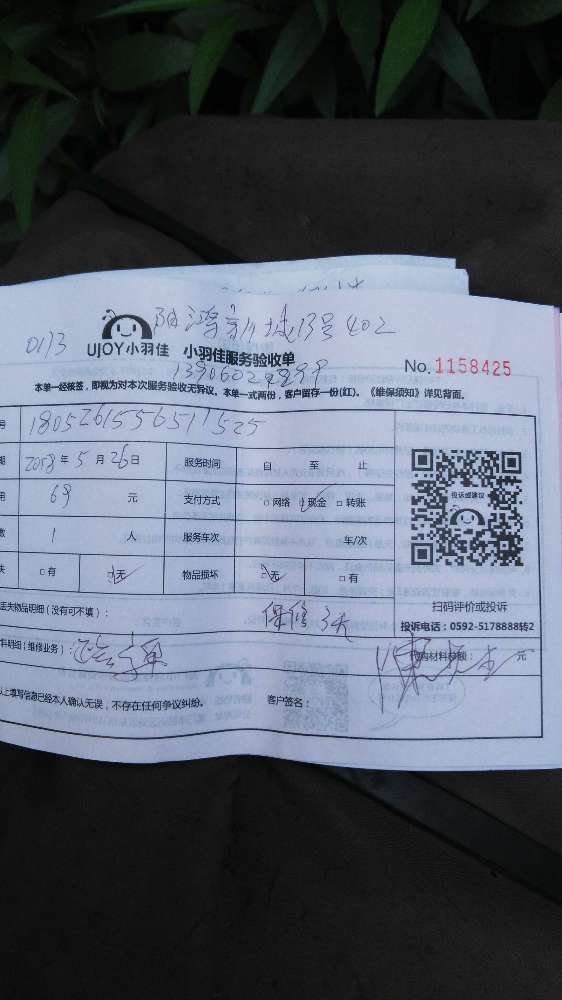 阳鸿新城13号402
0113
UJOY小羽佳 小羽佳服务验收单
No. 1158425
本单一经核签，即视为对本次服务验收无异议。本单一式两份，客户留存一份(红)。《维保须知》详见背面。
号 1805261556511525
期 2018年5月26日 服务时间 自 至 止
用 69 元 支付方式 □网络 □现金 □转账
数 1 人 服务车次 车/次
失 □有 □无 物品损坏 □无 □有
投诉或建议
扫码评价或投诉
投诉电话：0592-5178888转2
丢失物品明细（没有可不填）： 保修3天
料明细（维修业务）： 代购材料总额： 元
以上填写信息已经本人确认无误，不存在任何争议纠纷。 客户签名：